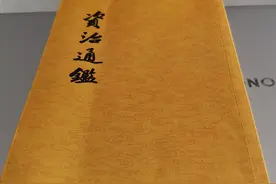 資治通鑑
NO